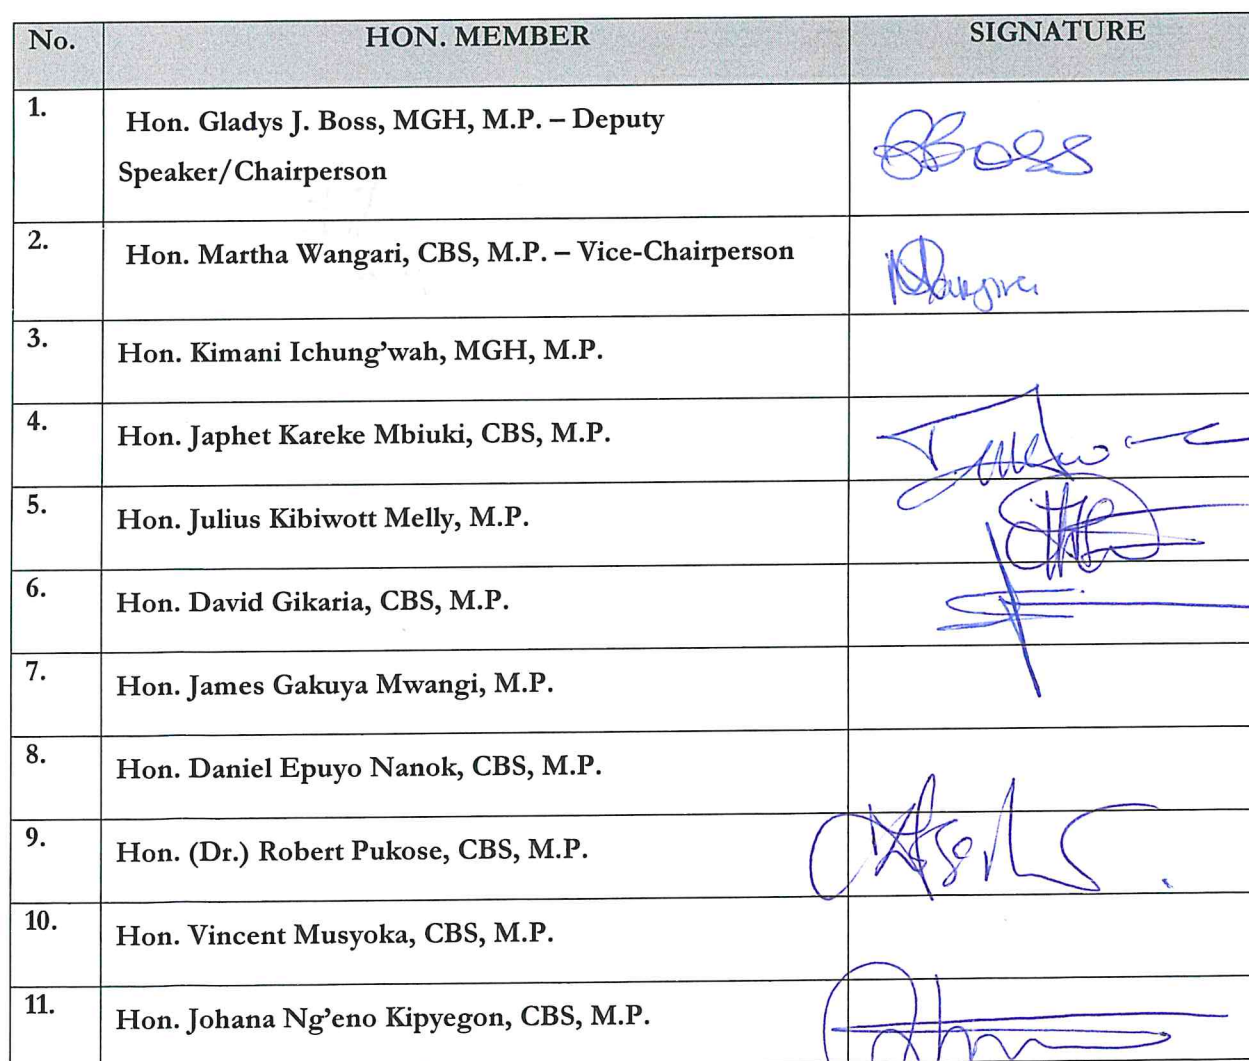 No. HON. MEMBER SIGNATURE
1. Hon. Gladys J. Boss, MGH, M.P. – Deputy
Speaker/Chairperson
Boss
2. Hon. Martha Wangari, CBS, M.P. – Vice-Chairperson
3. Hon. Kimani Ichung’wah, MGH, M.P.
4. Hon. Japhet Kareke Mbiuki, CBS, M.P.
5. Hon. Julius Kibiwott Melly, M.P.
6. Hon. David Gikaria, CBS, M.P.
7. Hon. James Gakuya Mwangi, M.P.
8. Hon. Daniel Epuyo Nanok, CBS, M.P.
9. Hon. (Dr.) Robert Pukose, CBS, M.P.
10. Hon. Vincent Musyoka, CBS, M.P.
11. Hon. Johana Ng’eno Kipyegon, CBS, M.P.